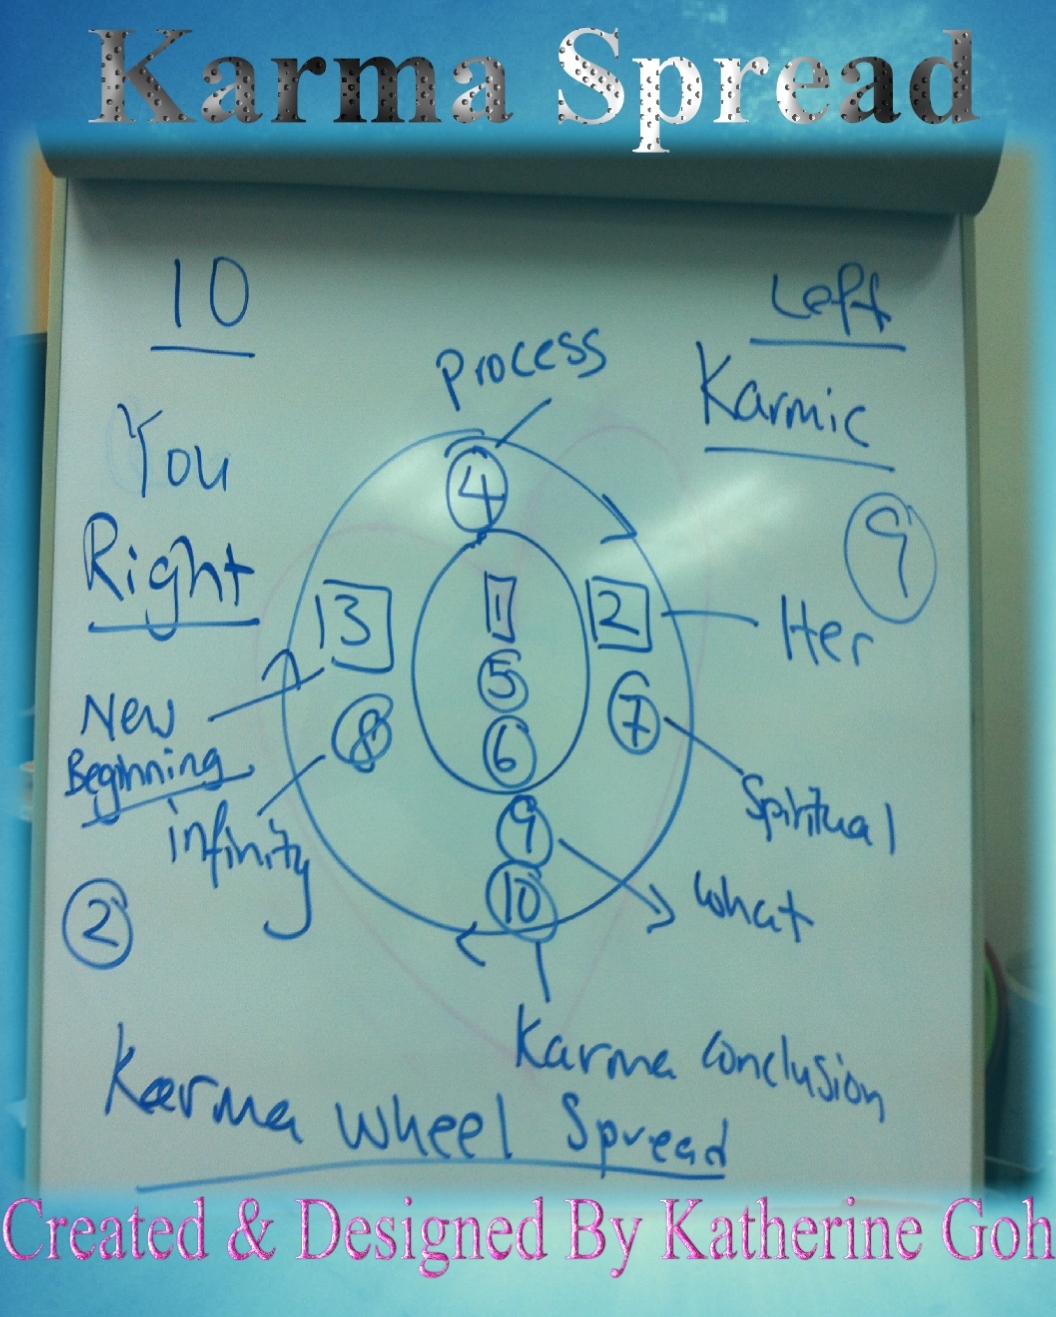 Karma Spread
10
Left
Process
Karmic
You
4
9
Right
3
1
2
Her
5
New
Beginning
8
6
7
infinity
9
Spiritual
10
What
2
Karma Conclusion
Karma Wheel Spread
Created & Designed By Katherine Goh